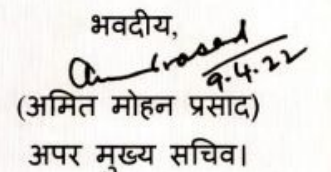 भवदीय,
9.4.22
(अमित मोहन प्रसाद)
अपर मुख्य सचिव।